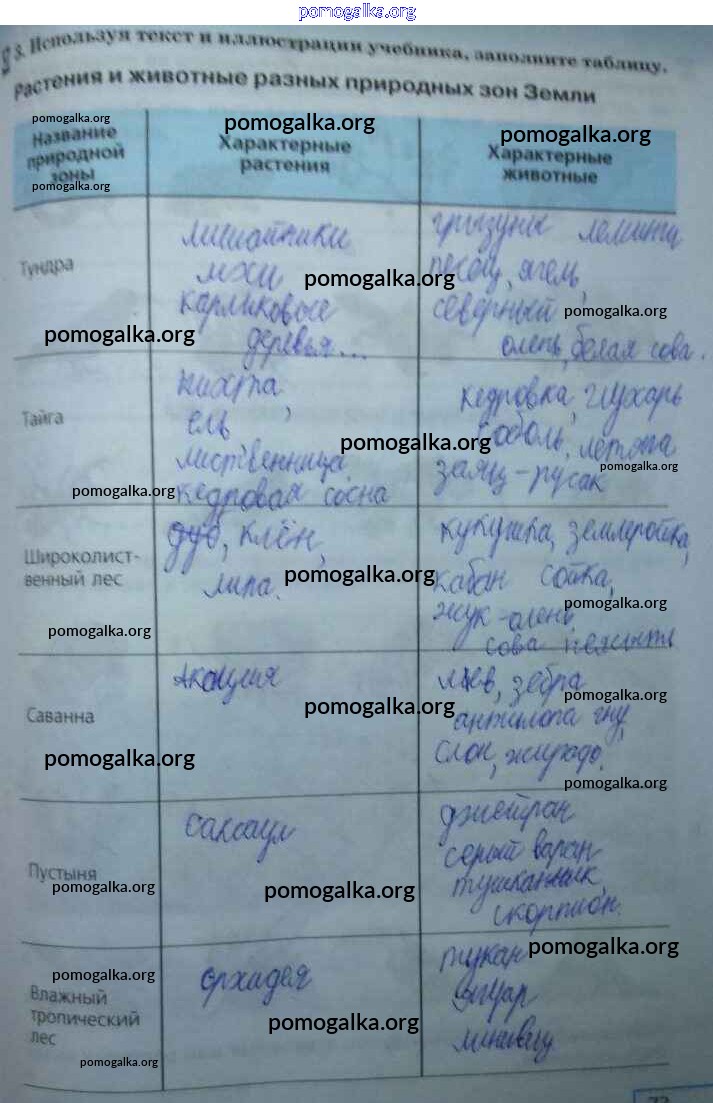 pomogalka.org
3. Используя текст и иллюстрации учебника, заполните таблицу.
Растения и животные разных природных зон Земли
pomogalka.org
pomogalka.org
pomogalka.org
Название
природной
зоны
pomogalka.org
Характерные
растения
Характерные
животные
Тундра
лишайники
мхи
карликовые
деревья...
грызуны лемминги
песец, ягель,
северный
олень, белая сова.
pomogalka.org
pomogalka.org
pomogalka.org
Тайга
пихта,
ель
лиственница
кедровая сосна
кедровка, глухарь
соболь, летяга
заяц-русак
pomogalka.org
pomogalka.org
pomogalka.org
Широколист-
венный лес
дуб, клён,
липа.
кукушка, землеройка,
кабан сойка,
жук-олень
сова неясыть
pomogalka.org
pomogalka.org
pomogalka.org
Саванна
Акация
лев, зебра
антилопа гну,
слон, жирафа,
pomogalka.org
pomogalka.org
pomogalka.org
pomogalka.org
Пустыня
саксаул
джейран
серый варан
тушканчик,
скорпион.
pomogalka.org
pomogalka.org
Влажный
тропический
лес
орхидея
тукан
ягуар
pomogalka.org
pomogalka.org
pomogalka.org
pomogalka.org